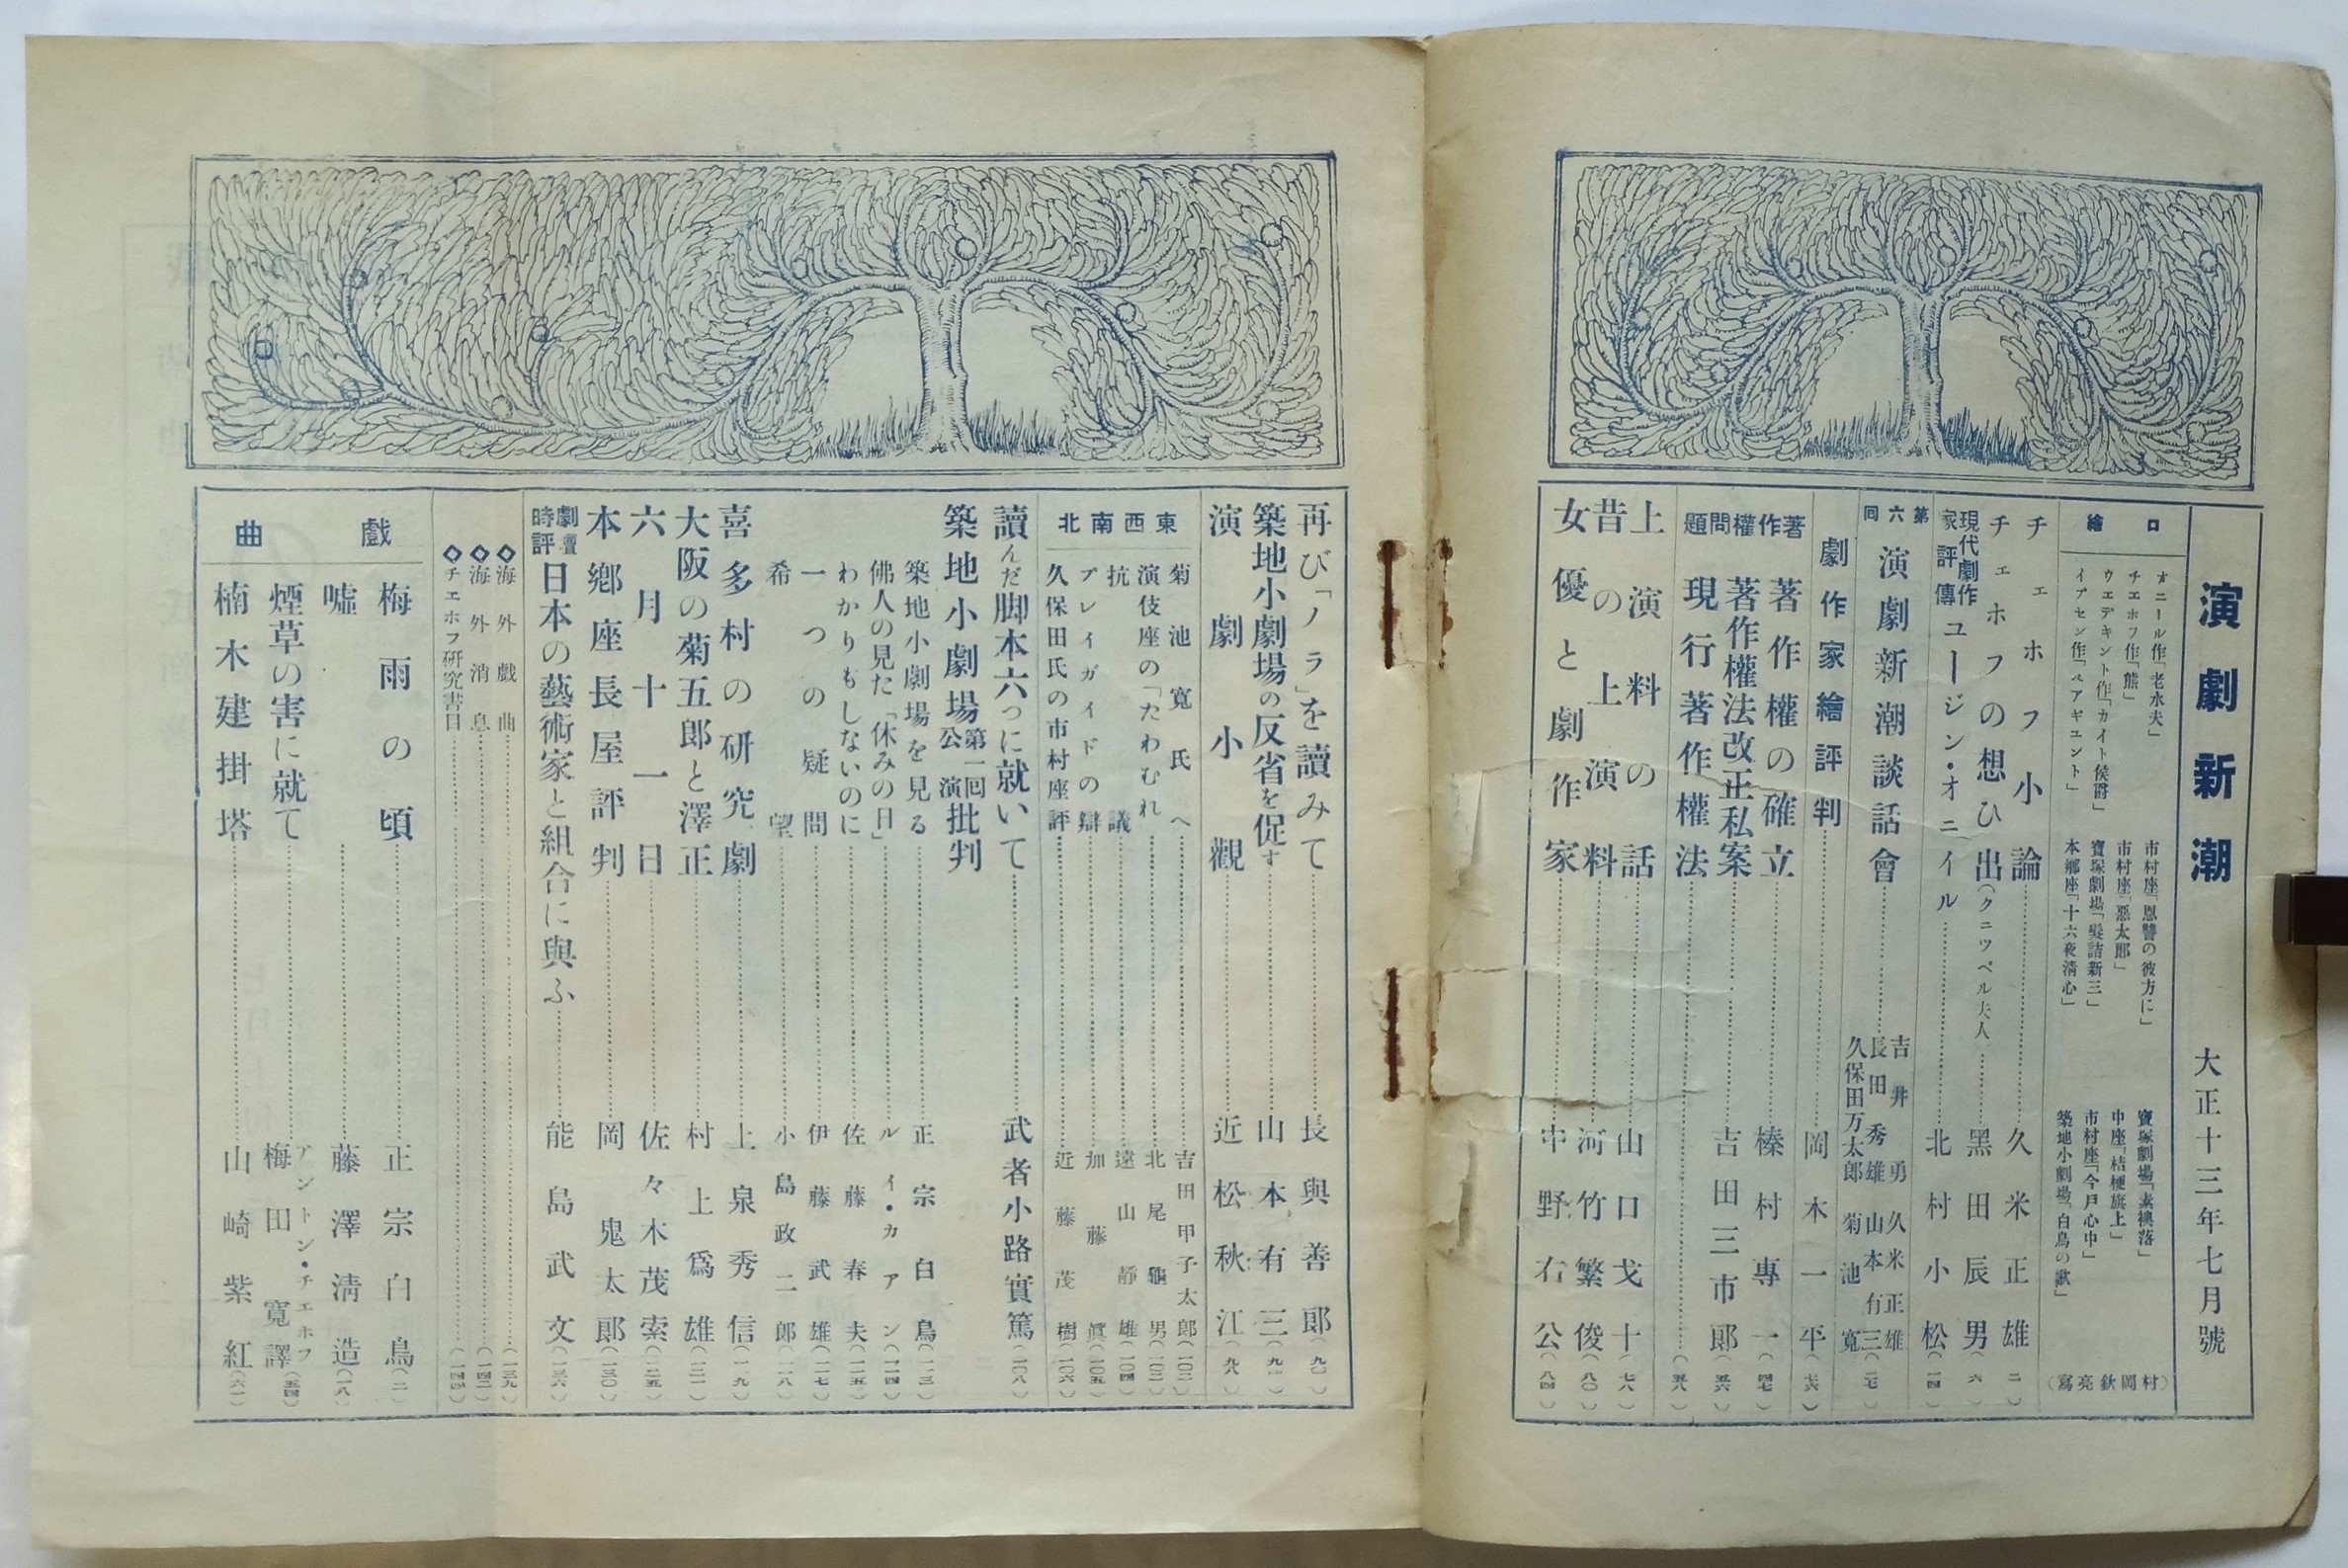 演劇新潮 大正十三年七月號
口繪
オニール作「老水夫」
チエホフ作「熊」
ウエデキント作「カイト侯爵」
イプセン作「ペアギユント」
市村座「恩讐の彼方に」
市村座「惡太郎」
寶塚劇場「髮詰新三」
本鄕座「十六夜淸心」
寶塚劇場「素襖落」
中座「桔梗旗上」
市村座「今戸心中」
築地小劇場「白鳥の歌」
(村岡欽亮寫)
チェホフ小論 久米正雄(二)
チェホフの想ひ出(クニツペル夫人) 黑田辰男(六)
現代劇作家評傳 ユージン・オニイル 北村小松(一四)
第六回 演劇新潮談話會 吉井勇 久米正雄 長田秀雄 山本有三 久保田万太郎 菊池寬(二七)
劇作家繪評判 岡本一平(七六)
著作權問題
著作權の確立 榛村專一(四七)
著作權法改正私案 吉田三市郎(五六)
現行著作權法(五八)
上演料の話 山口戈十(七八)
昔の上演料 河竹繁俊(八〇)
女優と劇作家 中野右公(八四)
再び「ノラ」を讀みて 長與善郞(九〇)
築地小劇場の反省を促す 山本有三
演劇小觀 近松秋江(九八)
東西南北
菊池寬氏へ 吉田甲子太郞
演伎座の「たわむれ」 北尾龜男
抗議 遠山靜雄(一〇四)
プレイガイドの辯 加藤眞(一〇五)
久保田氏の市村座評 近藤茂樹(一〇六)
讀んだ脚本六つに就いて 武者小路實篤(一〇八)
築地小劇場第一回公演批判
築地小劇場を見る 正宗白鳥
佛人の見た「休みの日」 ルイ・カアン(一一四)
わかりもしないのに 佐藤春夫(一一五)
一つの疑問 伊藤武雄(一一七)
希望 小島政二郞(一一八)
喜多村の研究劇 上泉秀信(一一九)
大阪の菊五郎と澤正 村上爲雄
六月十一日 佐々木茂索(一二五)
本鄕座長屋評判 岡鬼太郞(一三〇)
劇壇時評 日本の藝術家と組合に與ふ 能島武文(一三六)
◆海外戲曲(一三九)
◆海外消息
◆チエホフ研究書目(一四四)
戲曲
梅雨の頃 正宗白鳥(二)
噓 藤澤淸造(一八)
煙草の害に就て アントン・チエホフ 梅田寬譯(五四)
楠木建掛塔 山崎紫紅(六一)